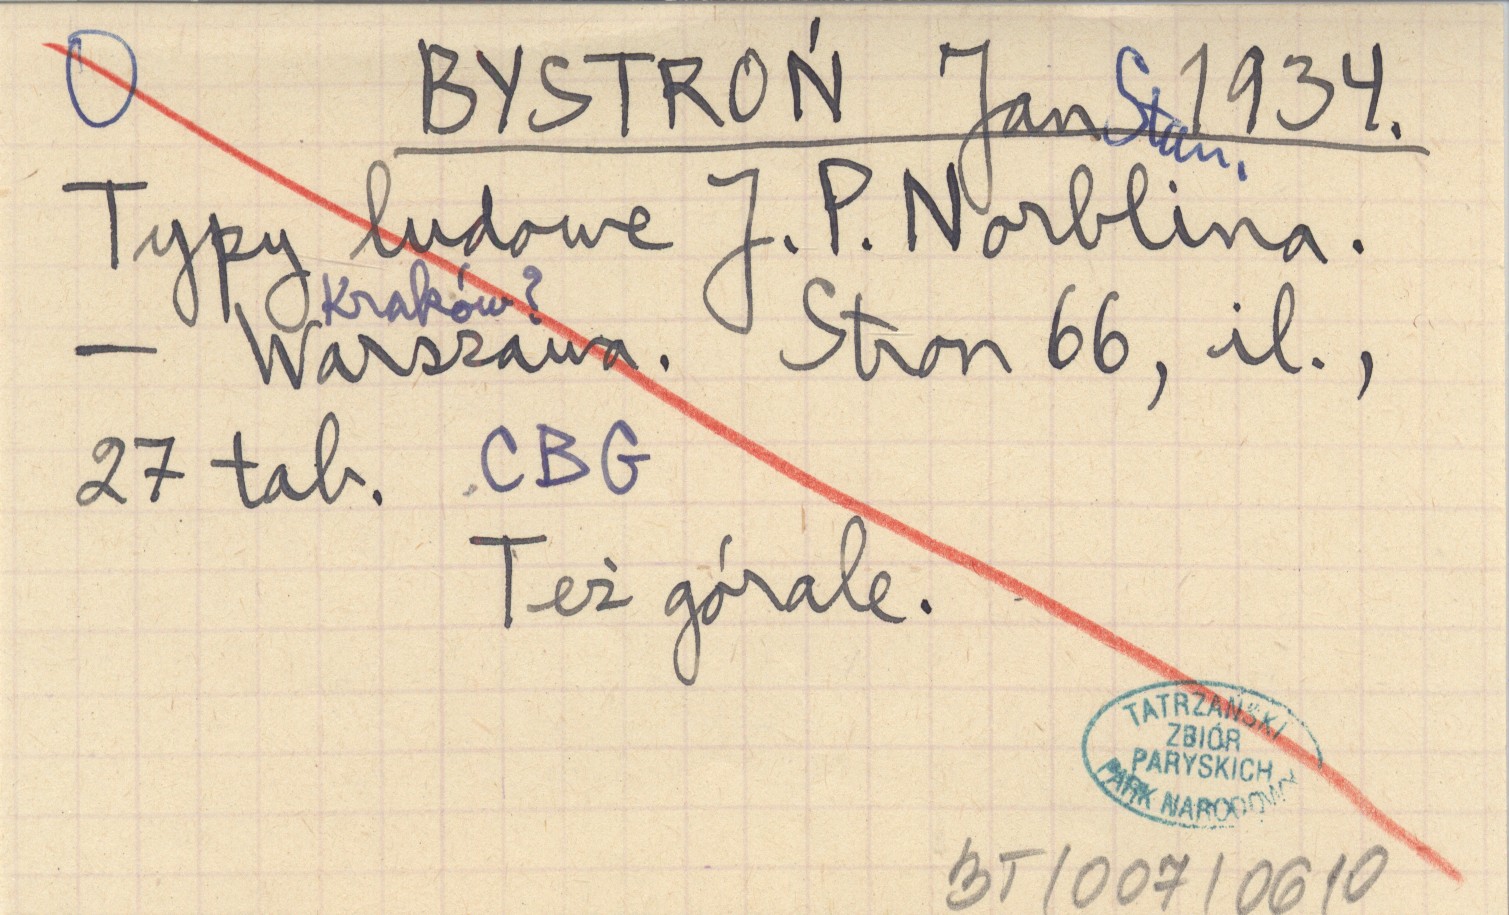 O BYSTROŃ Jan Stan. 1934.
Typy ludowe J. P. Norblina.
Kraków?
— Warszawa. Stron 66, il.,
27 tab. CBG
Też górale.
TATRZAŃSKI
ZBIÓR
PARYSKICH
PARK NARODOWY
BT/007/0610